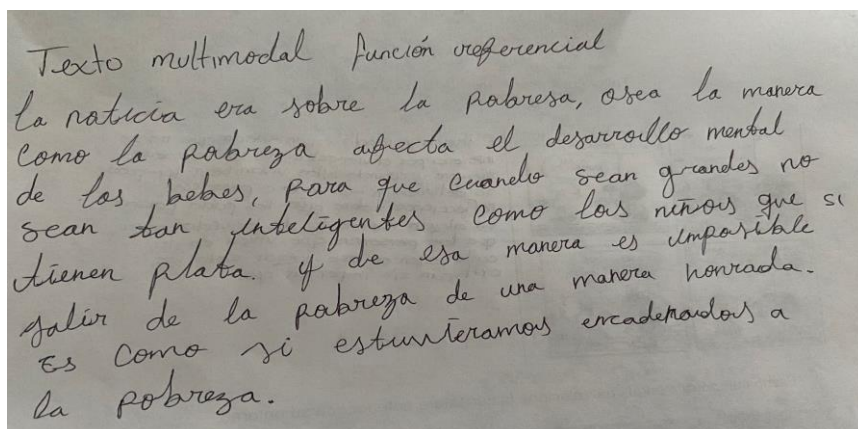 Texto multimodal función referencial
la noticia era sobre la pobresa, osea la manera
como la pobreza afecta el desarrollo mental
de los bebes, para que cuando sean grandes no
sean tan inteligentes como los niños que si
tienen plata. y de esa manera es imposible
salir de la pobreza de una manera honrada.
Es como si estuvieramos encadenados a
la pobreza.